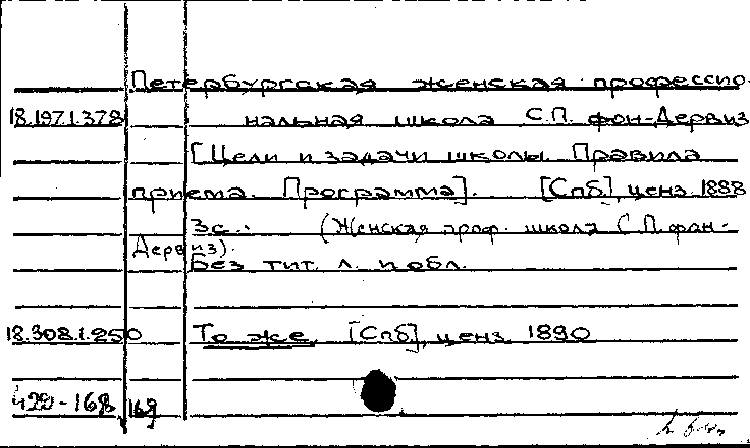 Петербургская женская профессио-
18.197.1.378 нальная школа С.П. фон-Дервиз
[Цели и задачи школы. Правила
приема. Программа]. [Спб], ценз. 1888
3с. (Женская проф. школа С.П. фон-
Дервиз).
Без тит. л. и обл.
18.308.1.250 То же. [Спб], ценз. 1890
420-168,169